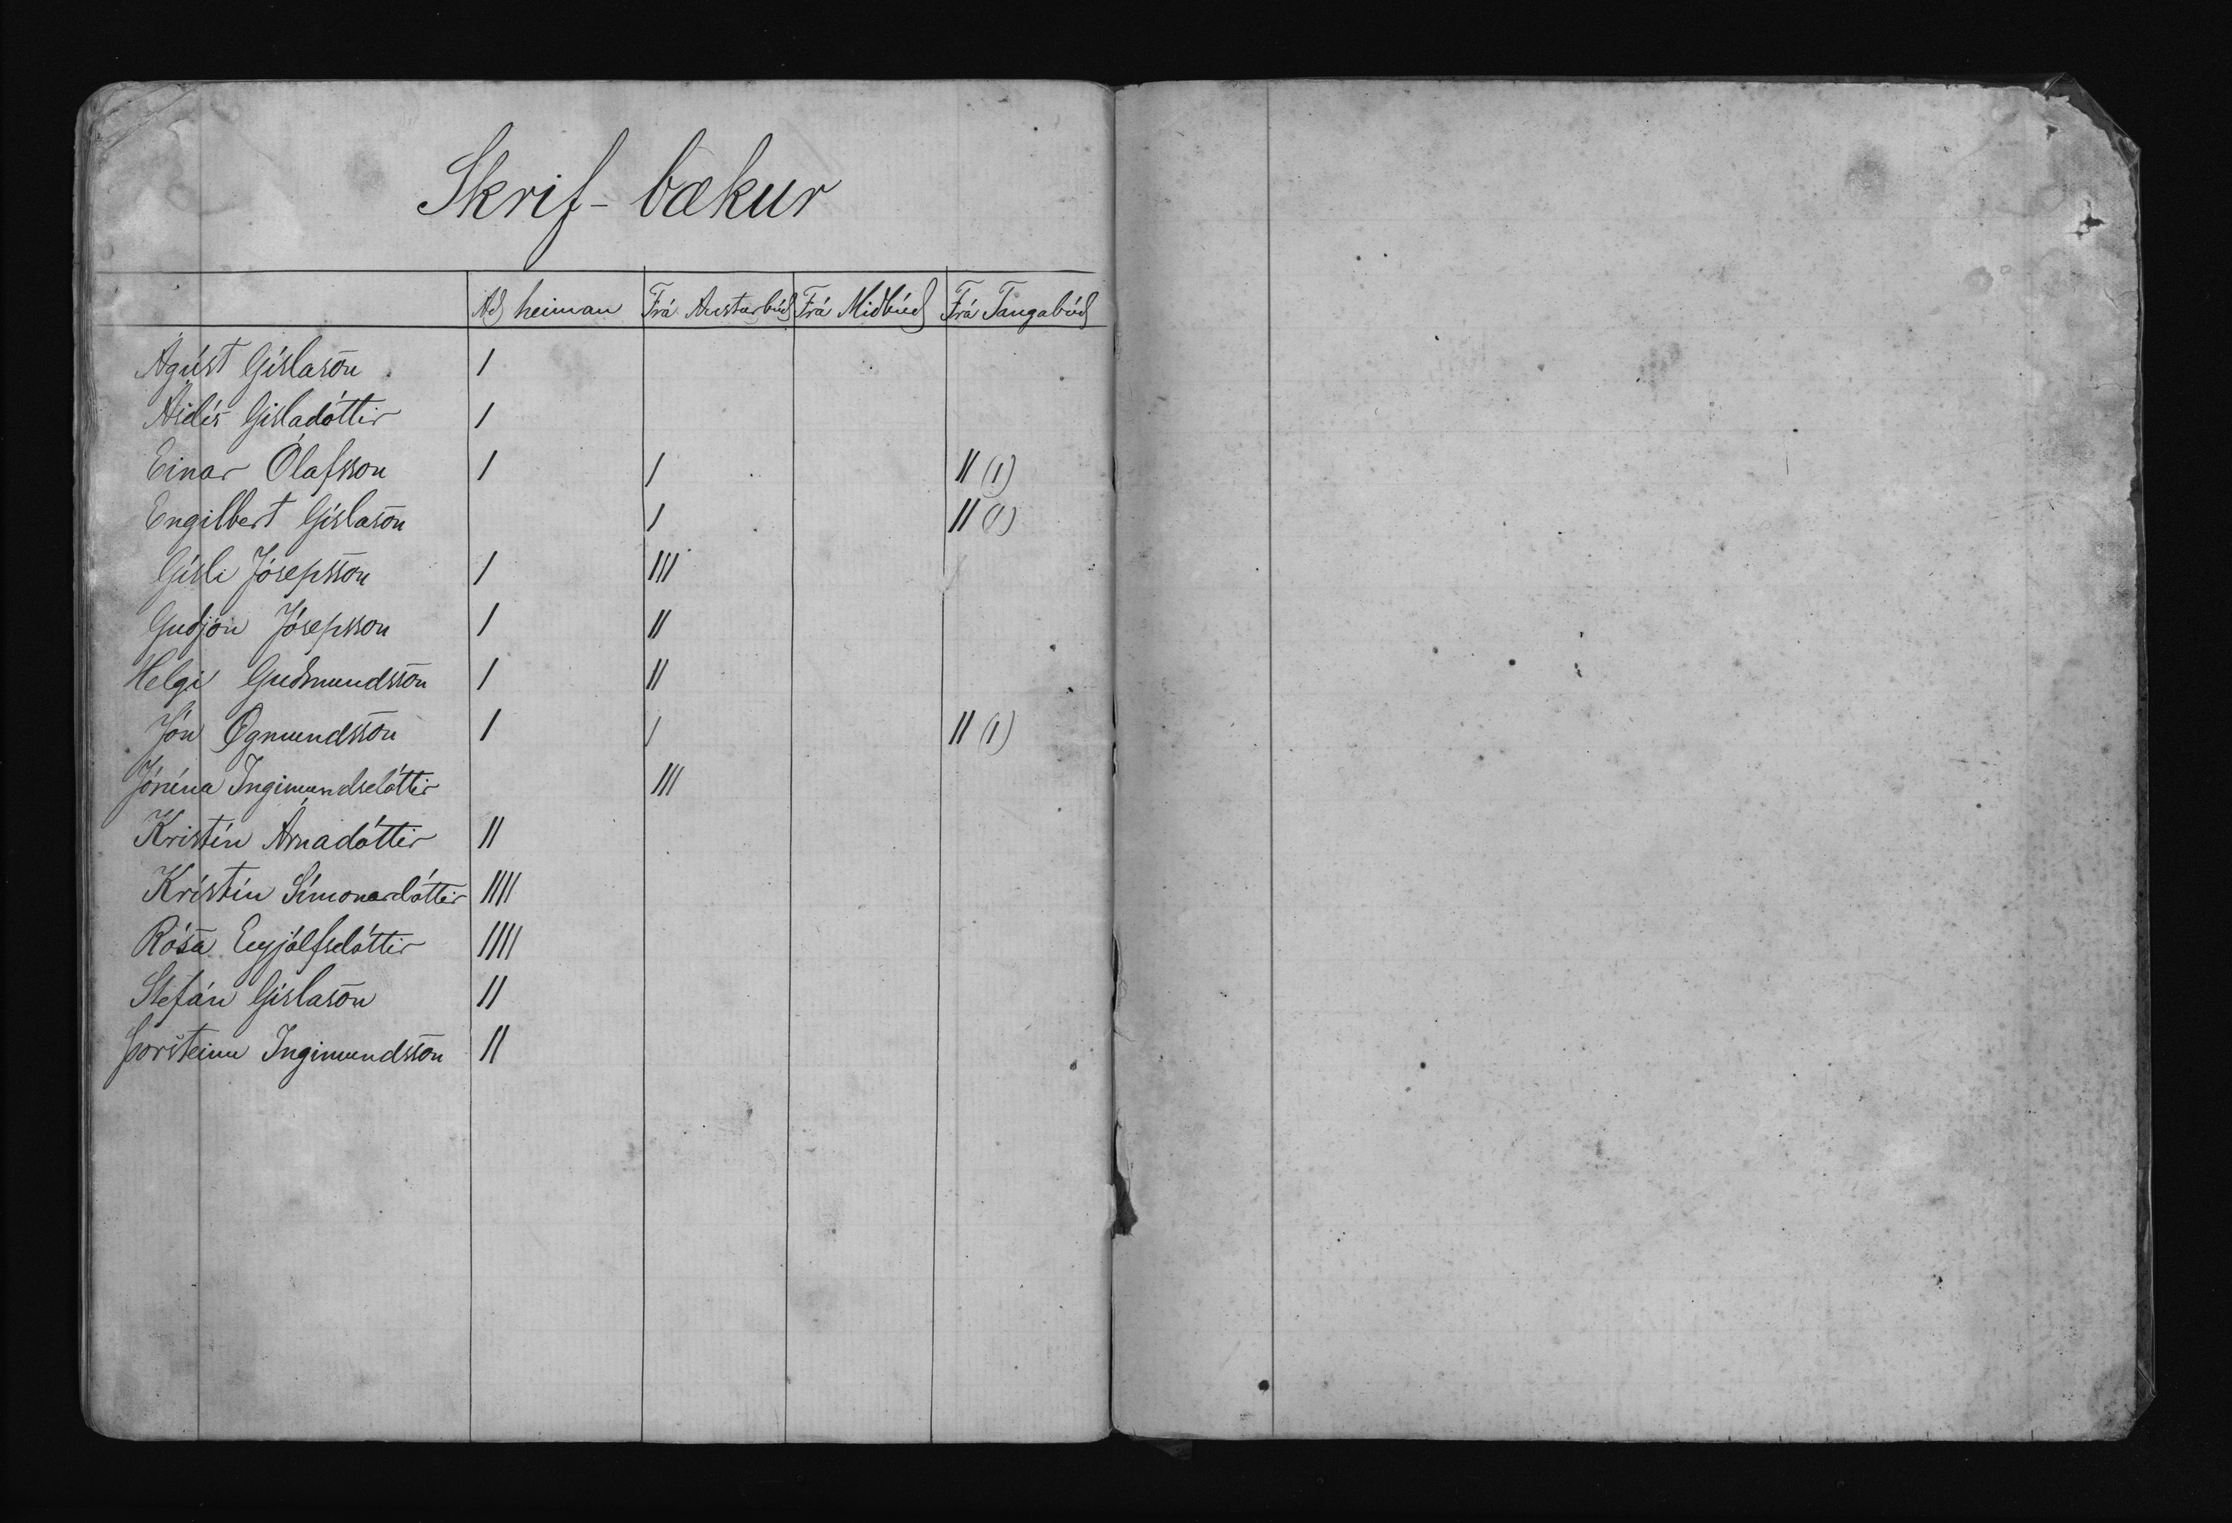 Skrif-bækur
Að heiman Frá Austurbúð Frá Miðbúð Frá Tangabúð
Ágúst Gíslason I
Ásdís Gísladóttir I
Einar Ólafsson I I II (I)
Engilbert Gíslason I II (I)
Gísli Jósepsson I III
Guðjón Jósepsson I II
Helgi Guðmundsson I II
Jón Ögmundsson I I II (I)
Jónína Ingimundsdóttir III
Kristín Árnadóttir II
Kristín Símonardóttir IIII
Rósa Eyjólfsdóttir IIII
Stefán Gíslason II
Þorsteinn Ingimundsson II